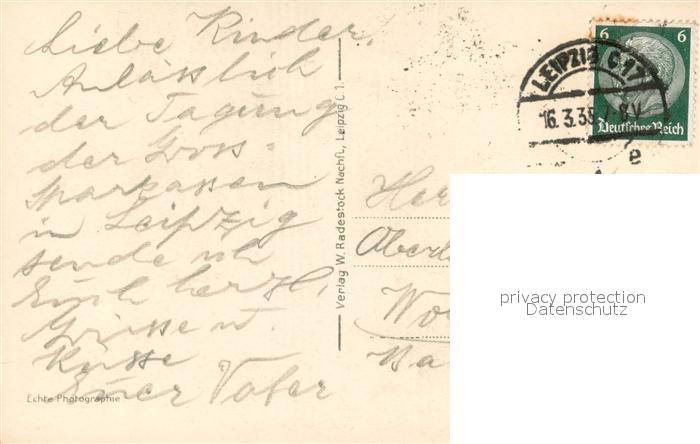 Liebe Kinder,
Anlässlich
der Tagung
der Gross-
sparkassen
in Leipzig
sende ich
Euch herzl.
Grüsse u.
Küsse
Euer Vater
Echte Photographie
Verlag W. Radestock Nachfl., Leipzig C 1.
6 6
Deutsches Reich
LEIPZIG C 17
16.3.35
8V
e
Her
Oberl
Wo
Ba
privacy protection
Datenschutz